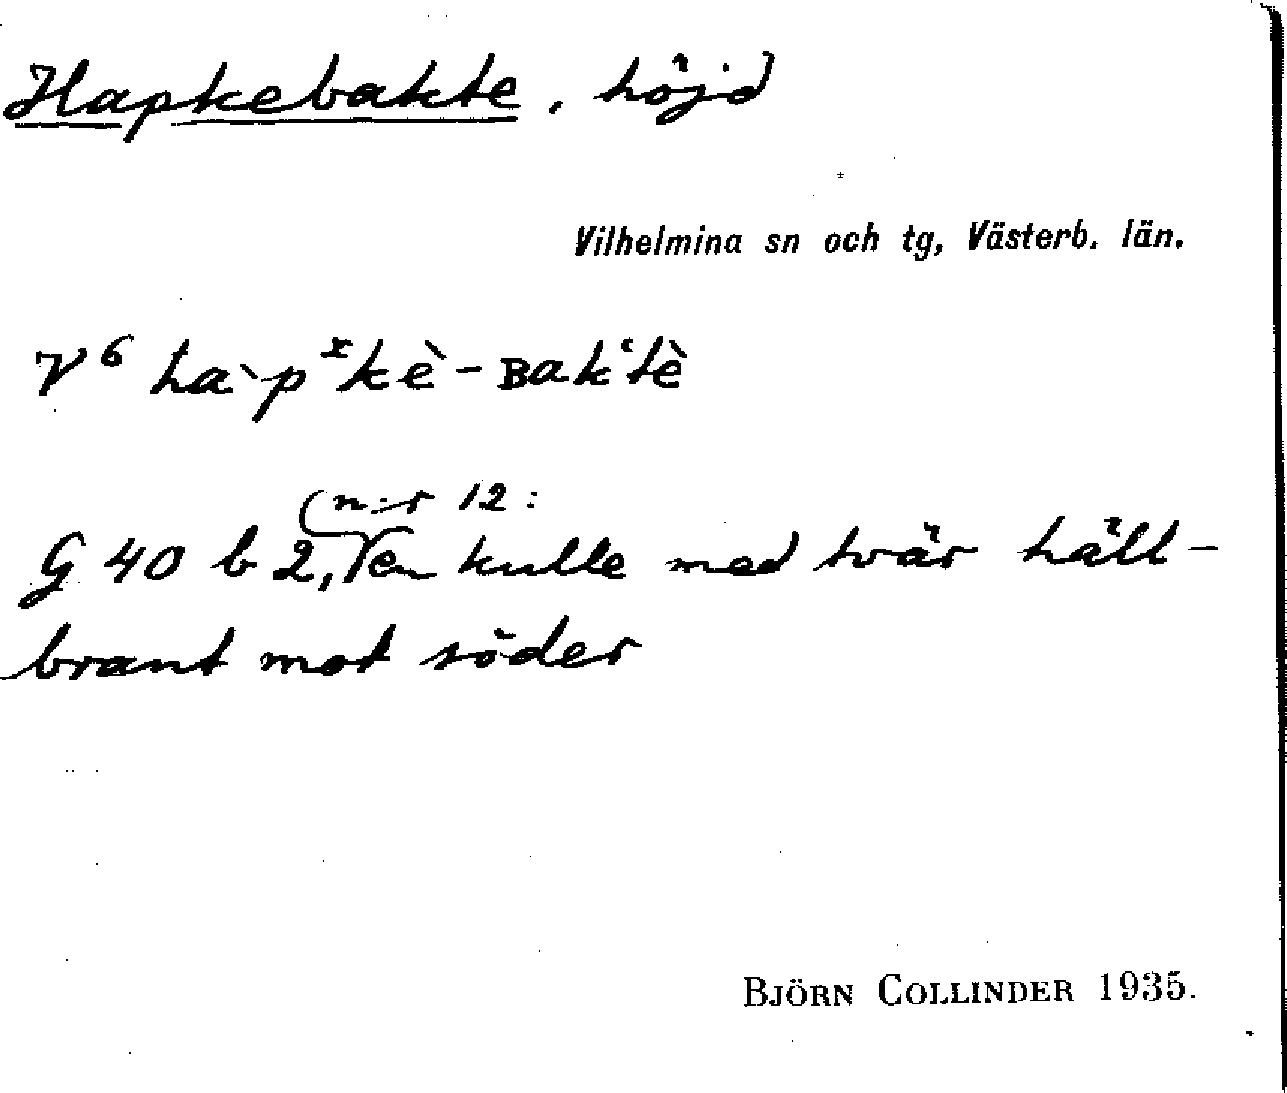 Hapkebakte, höjd
Vilhelmina sn och tg, Västerb. län.
V⁶ ha`pˣkè-ʙakʻtè
n:r 12:
G 40 b 2, en kulle med tvär häll-
brant mot söder
BJÖRN COLLINDER 1935.